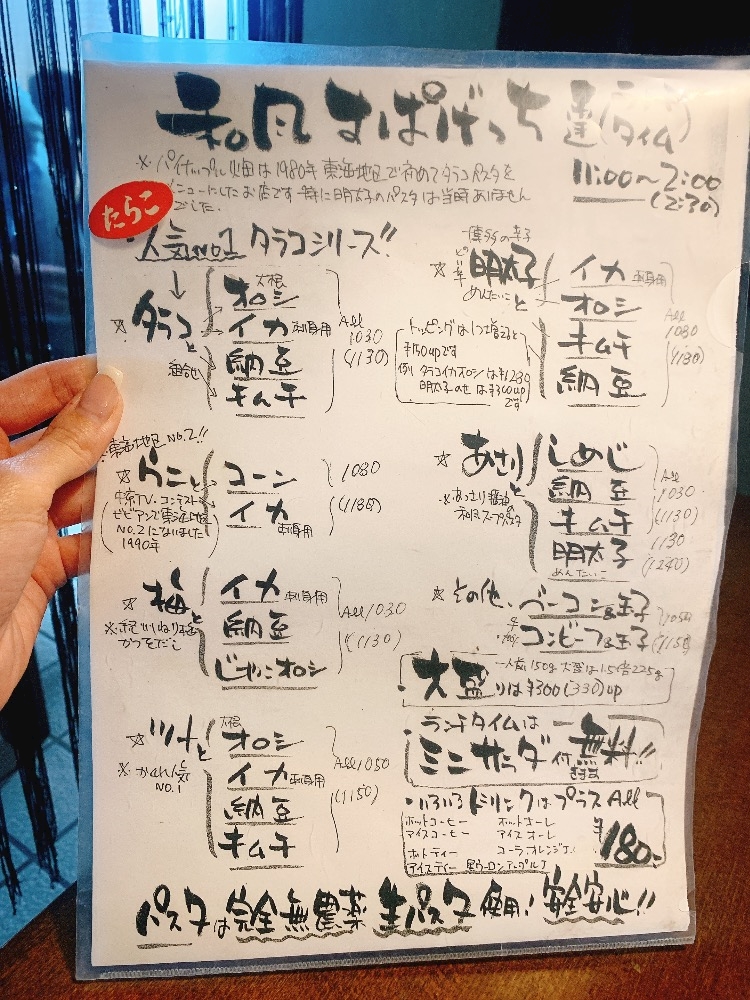 和風すぱげっち
(タイム)
11:00〜2:00
(2:30)
※パイナップル畑は1980年東海地区で初めてタラコパスタを
メニューにしたお店です 特に明太子のパスタは当時ありません
でした.
たらこ
人気No.1 タラコシリーズ!!
☆タラコと
大根
オロシ
イカ 刺身用
納豆
キムチ
All
1030
(1130)
☆明太子と
めんたいこ
イカ 刺身用
オロシ
キムチ
納豆
All
1080
(1180)
トッピングは1つ増えると
¥150upです
例 タラコイカオロシは¥1230
明太子のせは¥300up
です
東海地区No.2!!
☆うにと
コーン
イカ 刺身用
1080
(1180)
中京TV.コンテスト
ビビアンで東海地区
No.2になりました
1990年
☆あさりと
※あっさり醤油の
和風スープパスタ
しめじ
納豆
キムチ
明太子
めんたいこ
All
1030
(1130)
1130
(1240)
☆梅と
※紀州ねり梅
かつおだし
イカ 刺身用
納豆
じゃこオロシ
All 1030
(1130)
☆その他、ベーコン&玉子
コンビーフ&玉子
1050
(1150)
大盛りは¥300(330)up
一人前150g 大盛は1.5倍225g
☆ツナと
※かくれ人気
No.1
大根
オロシ
イカ 刺身用
納豆
キムチ
All 1050
(1150)
ランチタイムは
ミニサラダ付 無料!!
いろいろドリンクはプラスAll
¥180-
ホットコーヒー ホットオーレ
アイスコーヒー アイスオーレ
ホットティー コーラ オレンジJ.
アイスティー 黒ウーロン アップルJ
パスタは完全無農薬 生パスタ使用! 安全安心!!